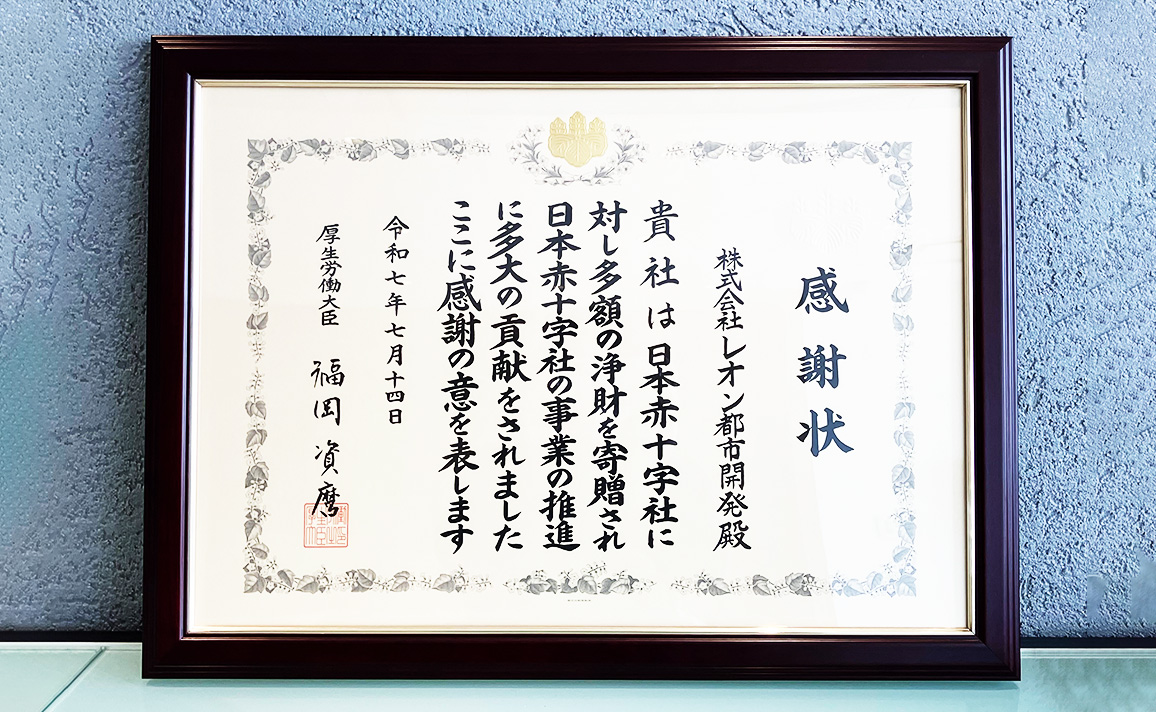 感謝状
株式会社レオン都市開発殿
貴社は日本赤十字社に
対し多額の浄財を寄贈され
日本赤十字社の事業の推進
に多大の貢献をされました
ここに感謝の意を表します
令和七年七月十四日
厚生労働大臣 福岡資麿